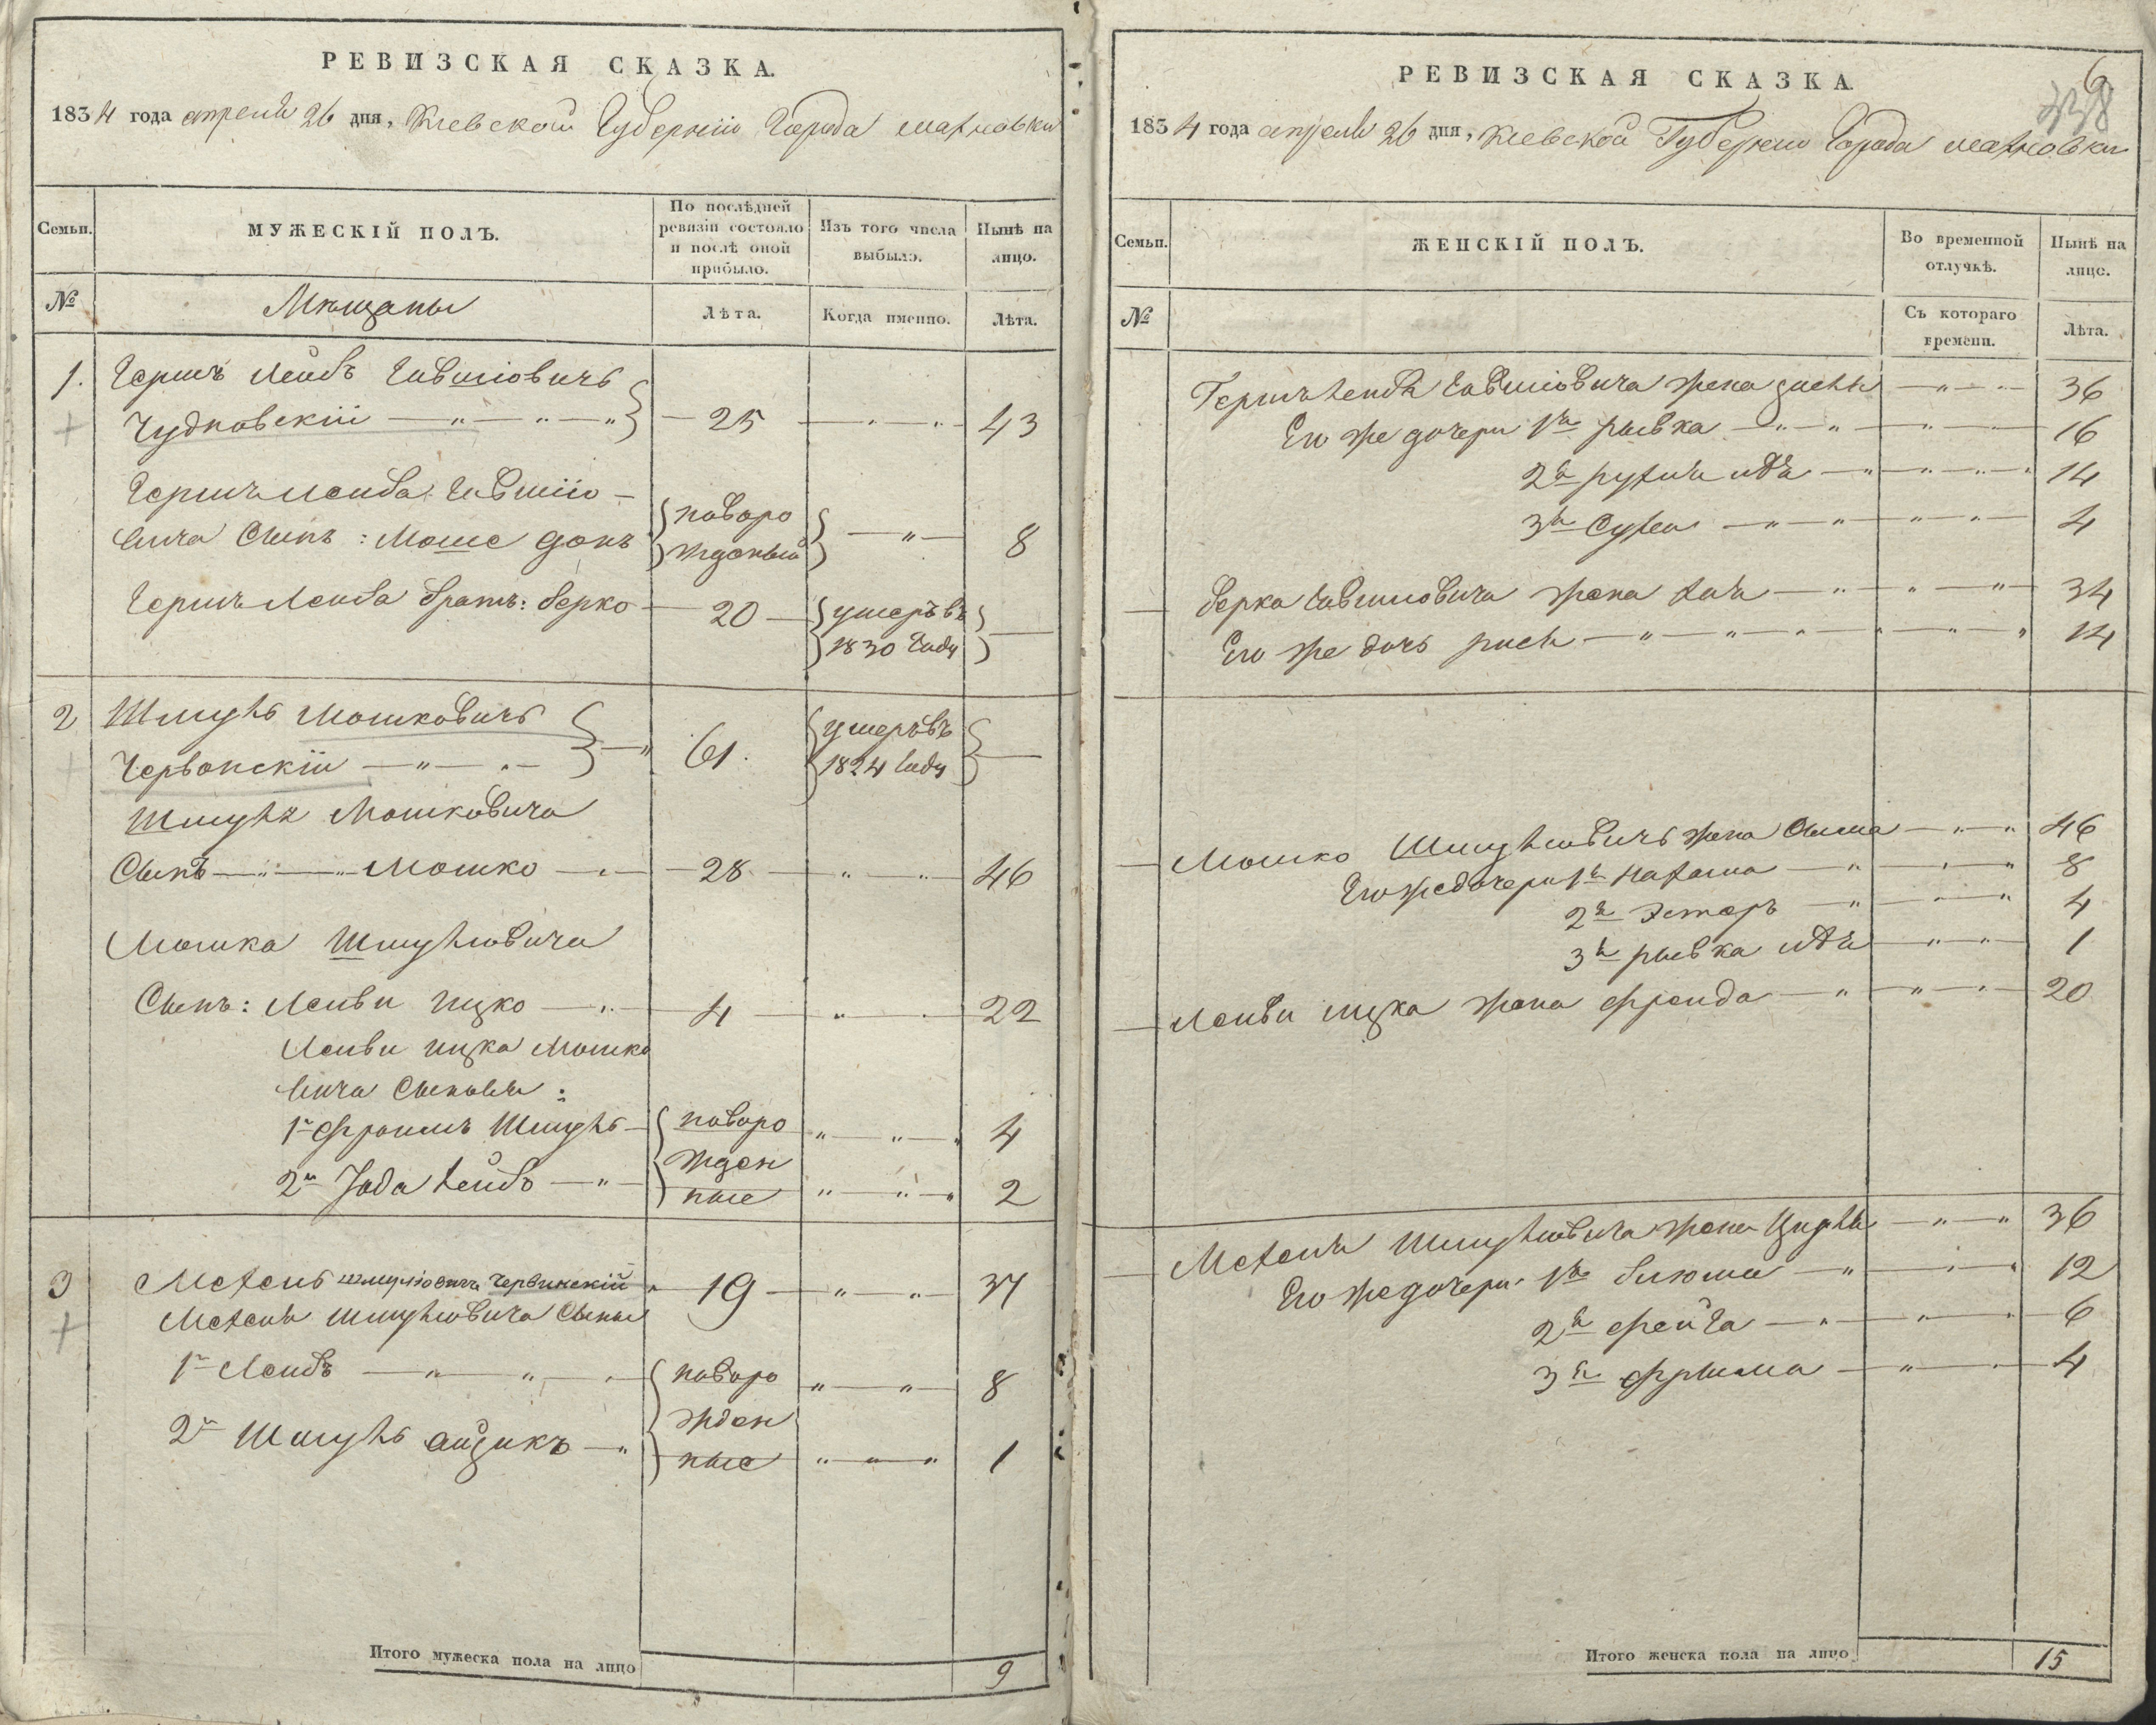 РЕВИЗСКАЯ СКАЗКА.
1834 года апреля 26 дня, Киевской Губерніи Города Махновки
Семьи.
МУЖЕСКІЙ ПОЛЪ.
По послѣдней ревизіи состояло и послѣ оной прибыло.
Изъ того числа выбыло.
Нынѣ на лицо.
№
Мещаны
Лѣта.
Когда именно.
Лѣта.
1. Гершъ Лейбъ Гавшіовичъ
Чудновскій — " — " — " — 25 — " — " — 43
Гершъ Лейба Гавшіо-
вича Сынъ: Моше донъ новорожденный — " — 8
Гершъ Лейба братъ: Берко — 20 — умеръ въ 1830 Году —
2 Шмуль Мошковичъ
Червонскій — " — " — 61. умеръ въ 1824 Году —
Шмуля Мошковича
Сынъ — " — " — Мошко — " — 28 — " — " — 46
Мошка Шмулiовича
Сынъ: Левви ицко — " — 4 — " — " — 22
Левви ицка Мошко
вича Сыновья:
1й Фроимъ Шмуль — новорожденные " — " — " 4
2й Іода Лейбъ — " — " — " — " 2
3 Мехель Шмуліовичъ Червинскій " 19 — " — " — 37
Мехеля Шмуліовича Сыны
1й Лейбъ — " — " — " — новорожденные " — " — 8
2й Шмуль айзикъ — " " — " — " 1
Итого мужеска пола на лицо 9
РЕВИЗСКАЯ СКАЗКА.
6
338
1834 года апреля 26 дня, Киевской Губерніи Города Махновки
Семьи.
ЖЕНСКІЙ ПОЛЪ.
Во временной отлучкѣ.
Нынѣ на лицо.
№
Съ котораго времени.
Лѣта.
Гершъ Лейба Гавшіовича жена — " — " — 36
Его же дочери 1я рывка — " — " — " — 16
2я рухля — " — " — " — " 14
3я Сухea — " — " — " — " — 4
— Берка Гавшіовича жена хая — " — " — " — 34
Его же дочь рися — " — " — " — " — " — " 14
— Мошко Шмуліовичъ жена Сима — " — " 46
Его же дочери 1я Нахама — " — " — " 8
2я Эстеръ — " — " — " 4
3я рывка — " — " — 1
— Левви ицка жена фрейда — " — " — " — 20
— Мехеля Шмуліовича жена Цирля — " — " 36
Его же дочери: 1я блюма — " — " — " 12
2я фейга — " — " — " 6
3я фрима — " — " — 4
Итого женска пола на лицо 15